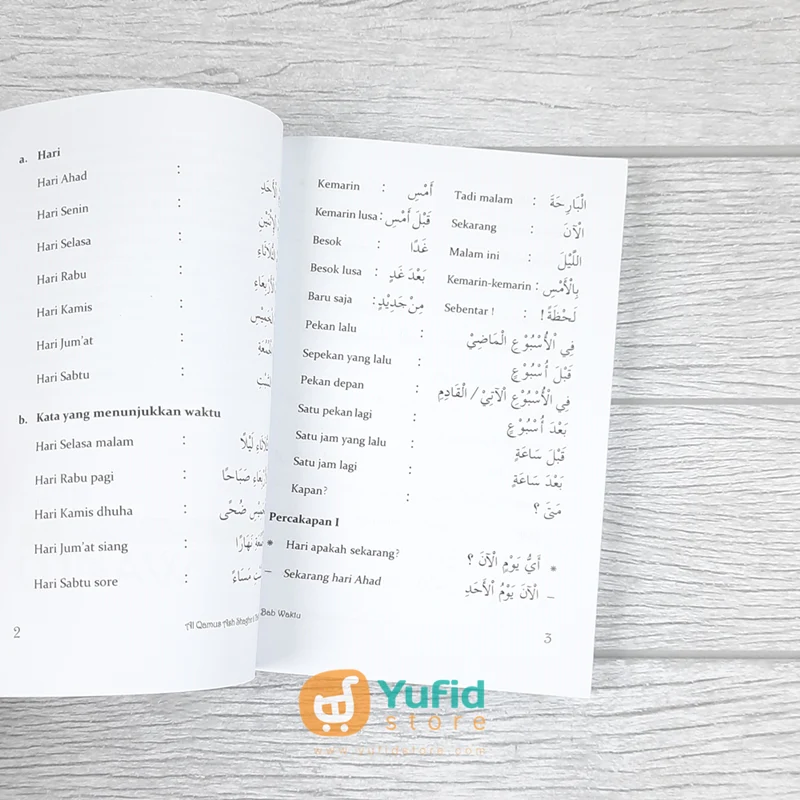 a. Hari
Hari Ahad :
Hari Senin :
Hari Selasa :
Hari Rabu :
Hari Kamis :
Hari Jum'at :
Hari Sabtu :
b. Kata yang menunjukkan waktu
Hari Selasa malam : لَيْلًا
Hari Rabu pagi : صَبَاحًا
Hari Kamis dhuha : ضُحًى
Hari Jum'at siang : نَهَارًا
Hari Sabtu sore : مَسَاءً
2 Al Qamus Ash Shaghir
Kemarin : أَمْسِ Tadi malam : الْبَارِحَةَ
Kemarin lusa : قَبْلَ أَمْسِ Sekarang : الْآنَ
Besok : غَدًا Malam ini : اللَّيْلَ
Besok lusa : بَعْدَ غَدٍ Kemarin-kemarin : بِالْأَمْسِ
Baru saja : مِنْ جَدِيْدٍ Sebentar ! : لَحْظَةً !
Pekan lalu : فِي الْأُسْبُوْعِ الْمَاضِيْ
Sepekan yang lalu : قَبْلَ أُسْبُوْعٍ
Pekan depan : فِي الْأُسْبُوْعِ الْآتِيْ / الْقَادِمِ
Satu pekan lagi : بَعْدَ أُسْبُوْعٍ
Satu jam yang lalu : قَبْلَ سَاعَةٍ
Satu jam lagi : بَعْدَ سَاعَةٍ
Kapan? : مَتَى ؟
Percakapan I
* Hari apakah sekarang? أَيُّ يَوْمٍ الْآنَ ؟ *
– Sekarang hari Ahad الْآنَ يَوْمُ الْأَحَدِ –
Bab Waktu 3
Yufid
store
www.yufidstore.com